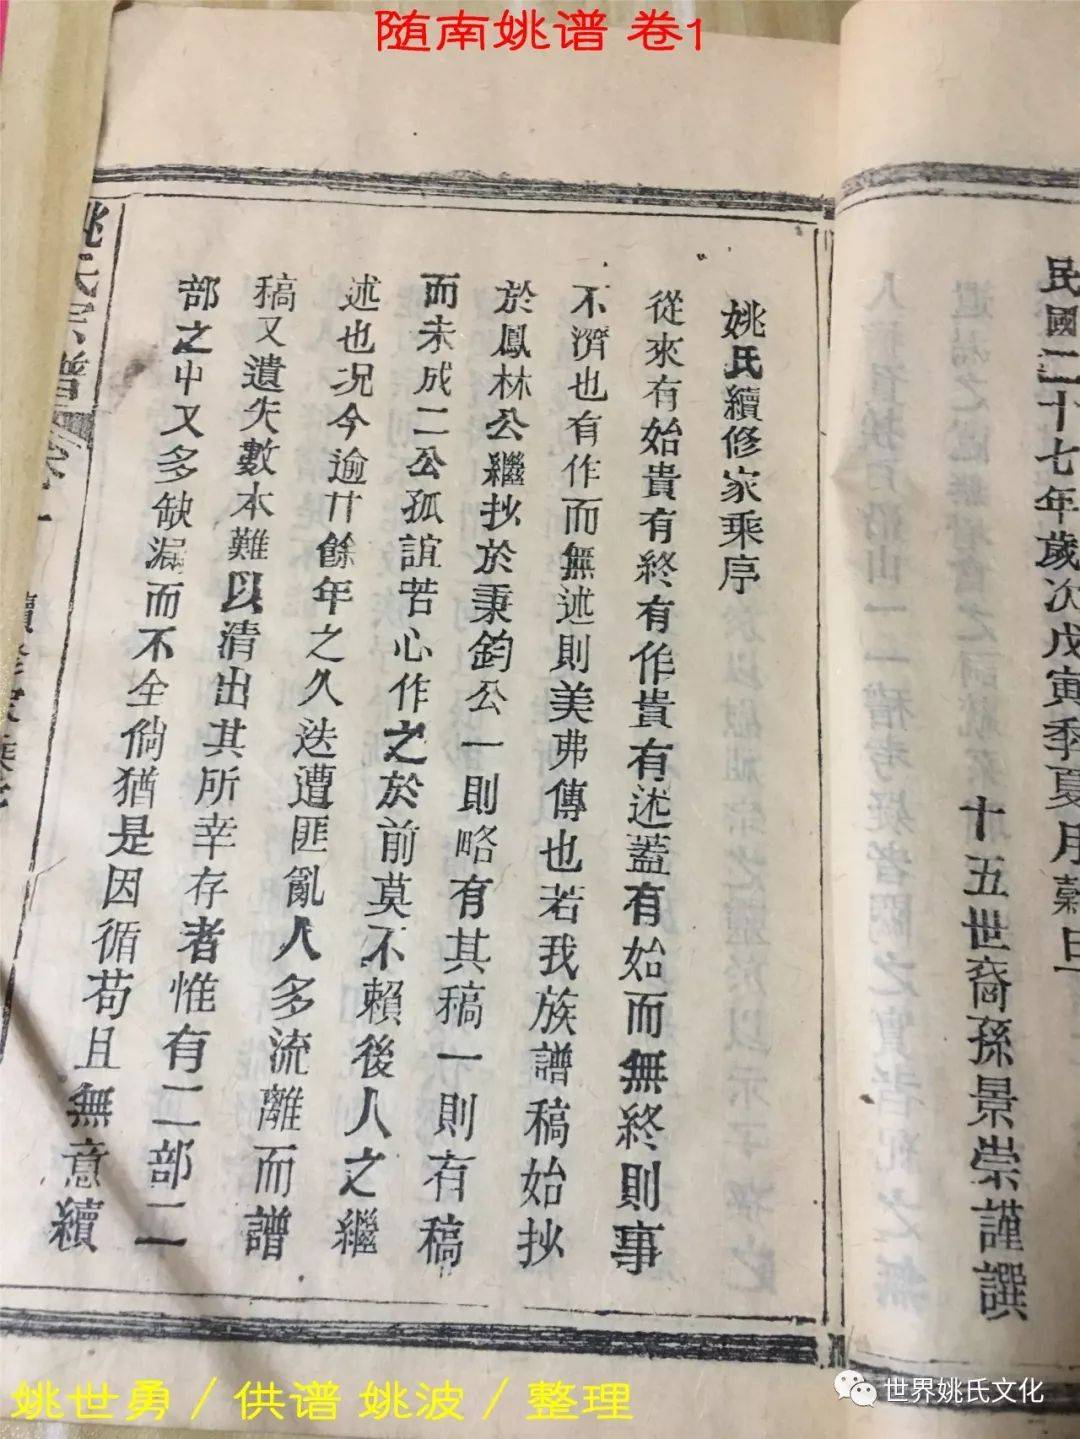 随南姚谱 卷1
民國二十七年歲次戊寅季夏月穀旦
十五世裔孫景崇謹譔
姚氏續修家乘序
從來有始貴有終有作貴有述蓋有始而無終則事
不濟也有作而無述則美弗傳也若我族譜稿始抄
於鳳林公繼抄於秉鈞公一則略有其稿一則有稿
而未成二公孤誼苦心作之於前莫不賴後人之繼
述也况今逾廿餘年之久迭遭匪亂人多流離而譜
稿又遺失數本難以清出其所幸存者惟有一二部二
部之中又多缺漏而不全倘猶是因循苟且無意續
姚氏宗譜 卷一 續修家乘序
姚世勇／供谱 姚波／整理
世界姚氏文化